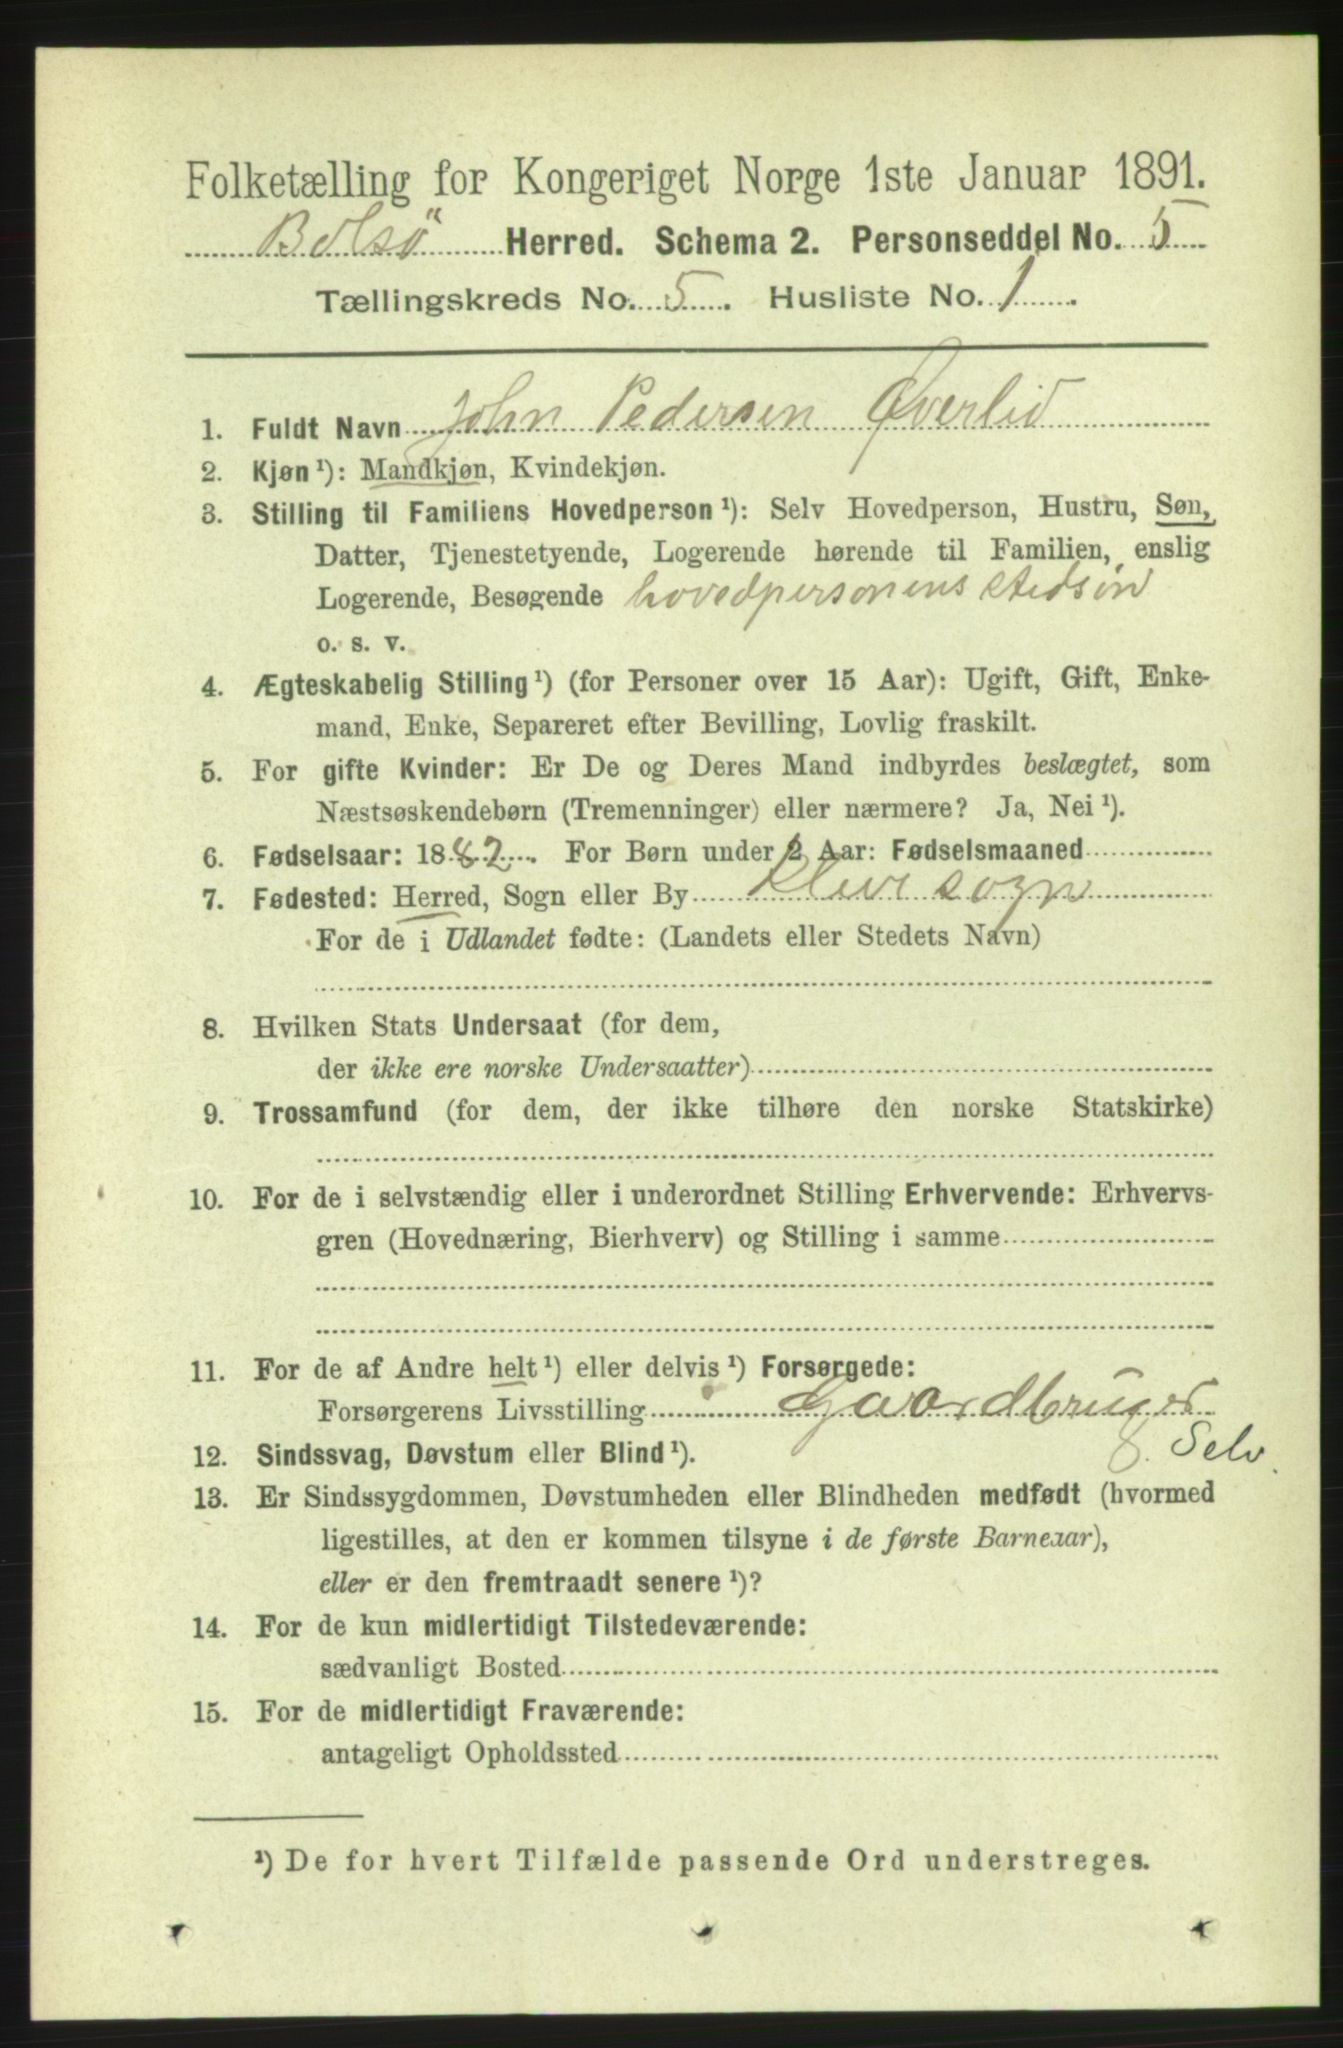 Folketælling for Kongeriget Norge 1ste Januar 1891.
Bolsö Herred. Schema 2. Personseddel No. 5
Tællingskreds No. 5. Husliste No. 1.
1. Fuldt Navn John Pedersen Øverlid
2. Kjøn ¹): Mandkjøn, Kvindekjøn.
3. Stilling til Familiens Hovedperson ¹): Selv Hovedperson, Hustru, Søn,
Datter, Tjenestetyende, Logerende hørende til Familien, enslig
Logerende, Besøgende hovedpersonens stedsøn
o. s. v.
4. Ægteskabelig Stilling ¹) (for Personer over 15 Aar): Ugift, Gift, Enke-
mand, Enke, Separeret efter Bevilling, Lovlig fraskilt.
5. For gifte Kvinder: Er De og Deres Mand indbyrdes beslægtet, som
Næstsøskendebørn (Tremenninger) eller nærmere? Ja, Nei ¹).
6. Fødselsaar: 1882. For Børn under 2 Aar: Fødselsmaaned
7. Fødested: Herred, Sogn eller By Kleve sogn
For de i Udlandet fødte: (Landets eller Stedets Navn)
8. Hvilken Stats Undersaat (for dem,
der ikke ere norske Undersaatter)
9. Trossamfund (for dem, der ikke tilhøre den norske Statskirke)
10. For de i selvstændig eller i underordnet Stilling Erhvervende: Erhvervs-
gren (Hovednæring, Bierhverv) og Stilling i samme
11. For de af Andre helt ¹) eller delvis ¹) Forsørgede:
Forsørgerens Livsstilling Gaardbruger
12. Sindssvag, Døvstum eller Blind ¹). Selv.
13. Er Sindssygdommen, Døvstumheden eller Blindheden medfødt (hvormed
ligestilles, at den er kommen tilsyne i de første Barneaar),
eller er den fremtraadt senere ¹)?
14. For de kun midlertidigt Tilstedeværende:
sædvanligt Bosted
15. For de midlertidigt Fraværende:
antageligt Opholdssted
¹) De for hvert Tilfælde passende Ord understreges.